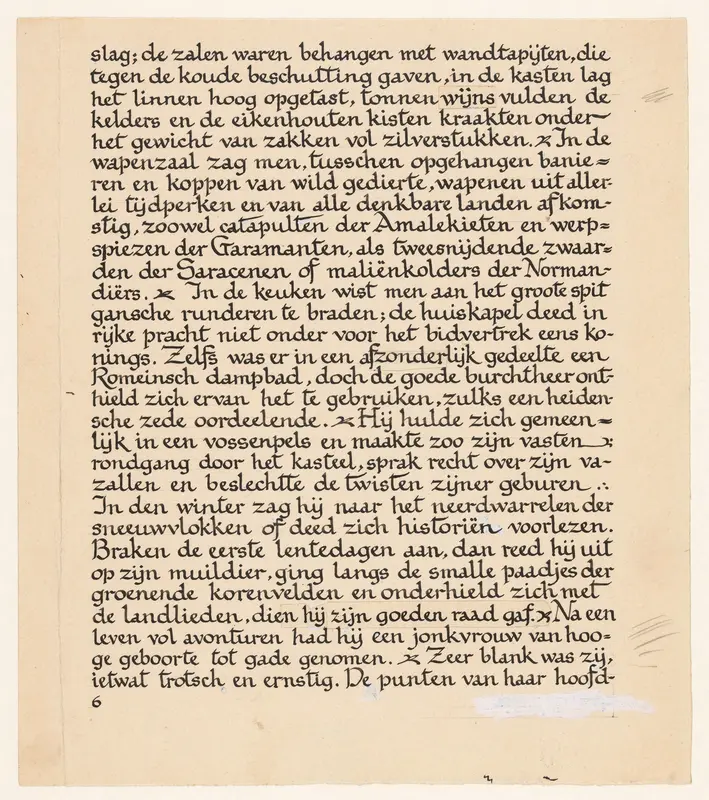 slag; de zalen waren behangen met wandtapijten, die
tegen de koude beschutting gaven, in de kasten lag
het linnen hoog opgetast, tonnen wijns vulden de
kelders en de eikenhouten kisten kraakten onder-
het gewicht van zakken vol zilverstukken. In de
wapenzaal zag men, tusschen opgehangen banie=
ren en koppen van wild gedierte, wapenen uit aller-
lei tijdperken en van alle denkbare landen afkom-
stig, zoowel catapulten der Amalekieten en werp=
spiezen der Garamanten, als tweesnijdende zwaar=
den der Saracenen of maliënkolders der Norman-
diërs. In de keuken wist men aan het groote spit
gansche runderen te braden; de huiskapel deed in
rijke pracht niet onder voor het bidvertrek eens ko-
nings. Zelfs was er in een afzonderlijk gedeelte een
Romeinsch dampbad, doch de goede burchtheer ont-
hield zich ervan het te gebruiken, zulks een heiden-
sche zede oordeelende. Hij hulde zich gemeen=
lijk in een vossenpels en maakte zoo zijn vasten
rondgang door het kasteel, sprak recht over zijn va-
zallen en beslechtte de twisten zijner geburen ∴
In den winter zag hij naar het neerdwarrelen der
sneeuwvlokken of deed zich historiën voorlezen.
Braken de eerste lentedagen aan, dan reed hij uit
op zijn muildier, ging langs de smalle paadjes der
groenende korenvelden en onderhield zich met
de landlieden, dien hij zijn goeden raad gaf. Na een
leven vol avonturen had hij een jonkvrouw van hoo=
ge geboorte tot gade genomen. Zeer blank was zij,
ietwat trotsch en ernstig. De punten van haar hoofd-
6